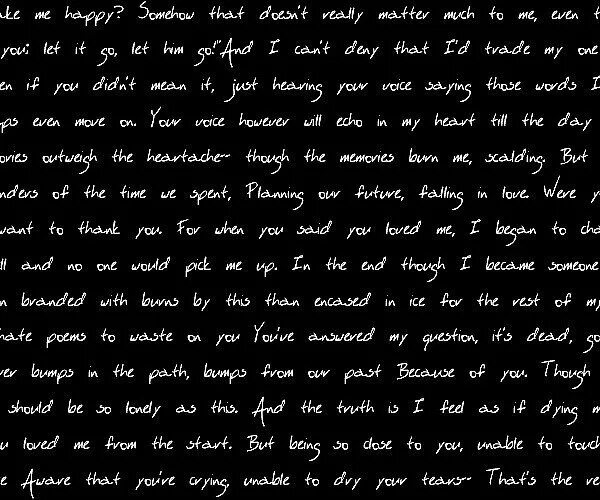 ake me happy? Somehow that doesn't really matter much to me, even t
you: let it go, let him go!"And I can't deny that I'd trade my one
en if you didn't mean it, just hearing your voice saying those words I
ps even move on. Your voice however will echo in my heart till the day
ories outweigh the heartache~ though the memories burn me, scalding. But
nders of the time we spent, Planning our future, falling in love. Were y
want to thank you. For when you said you loved me, I began to cha
ll and no one would pick me up. In the end though I became someone
n branded with burns by this than encased in ice for the rest of my
hate poems to waste on you You've answered my question, it's dead, go
ver bumps in the path, bumps from our past Because of you. Though
should be so lonely as this. And the truth is I feel as if dying m
u loved me from the start. But being so close to you, unable to touch
e Aware that you're crying, unable to dry your tears~ That's the re